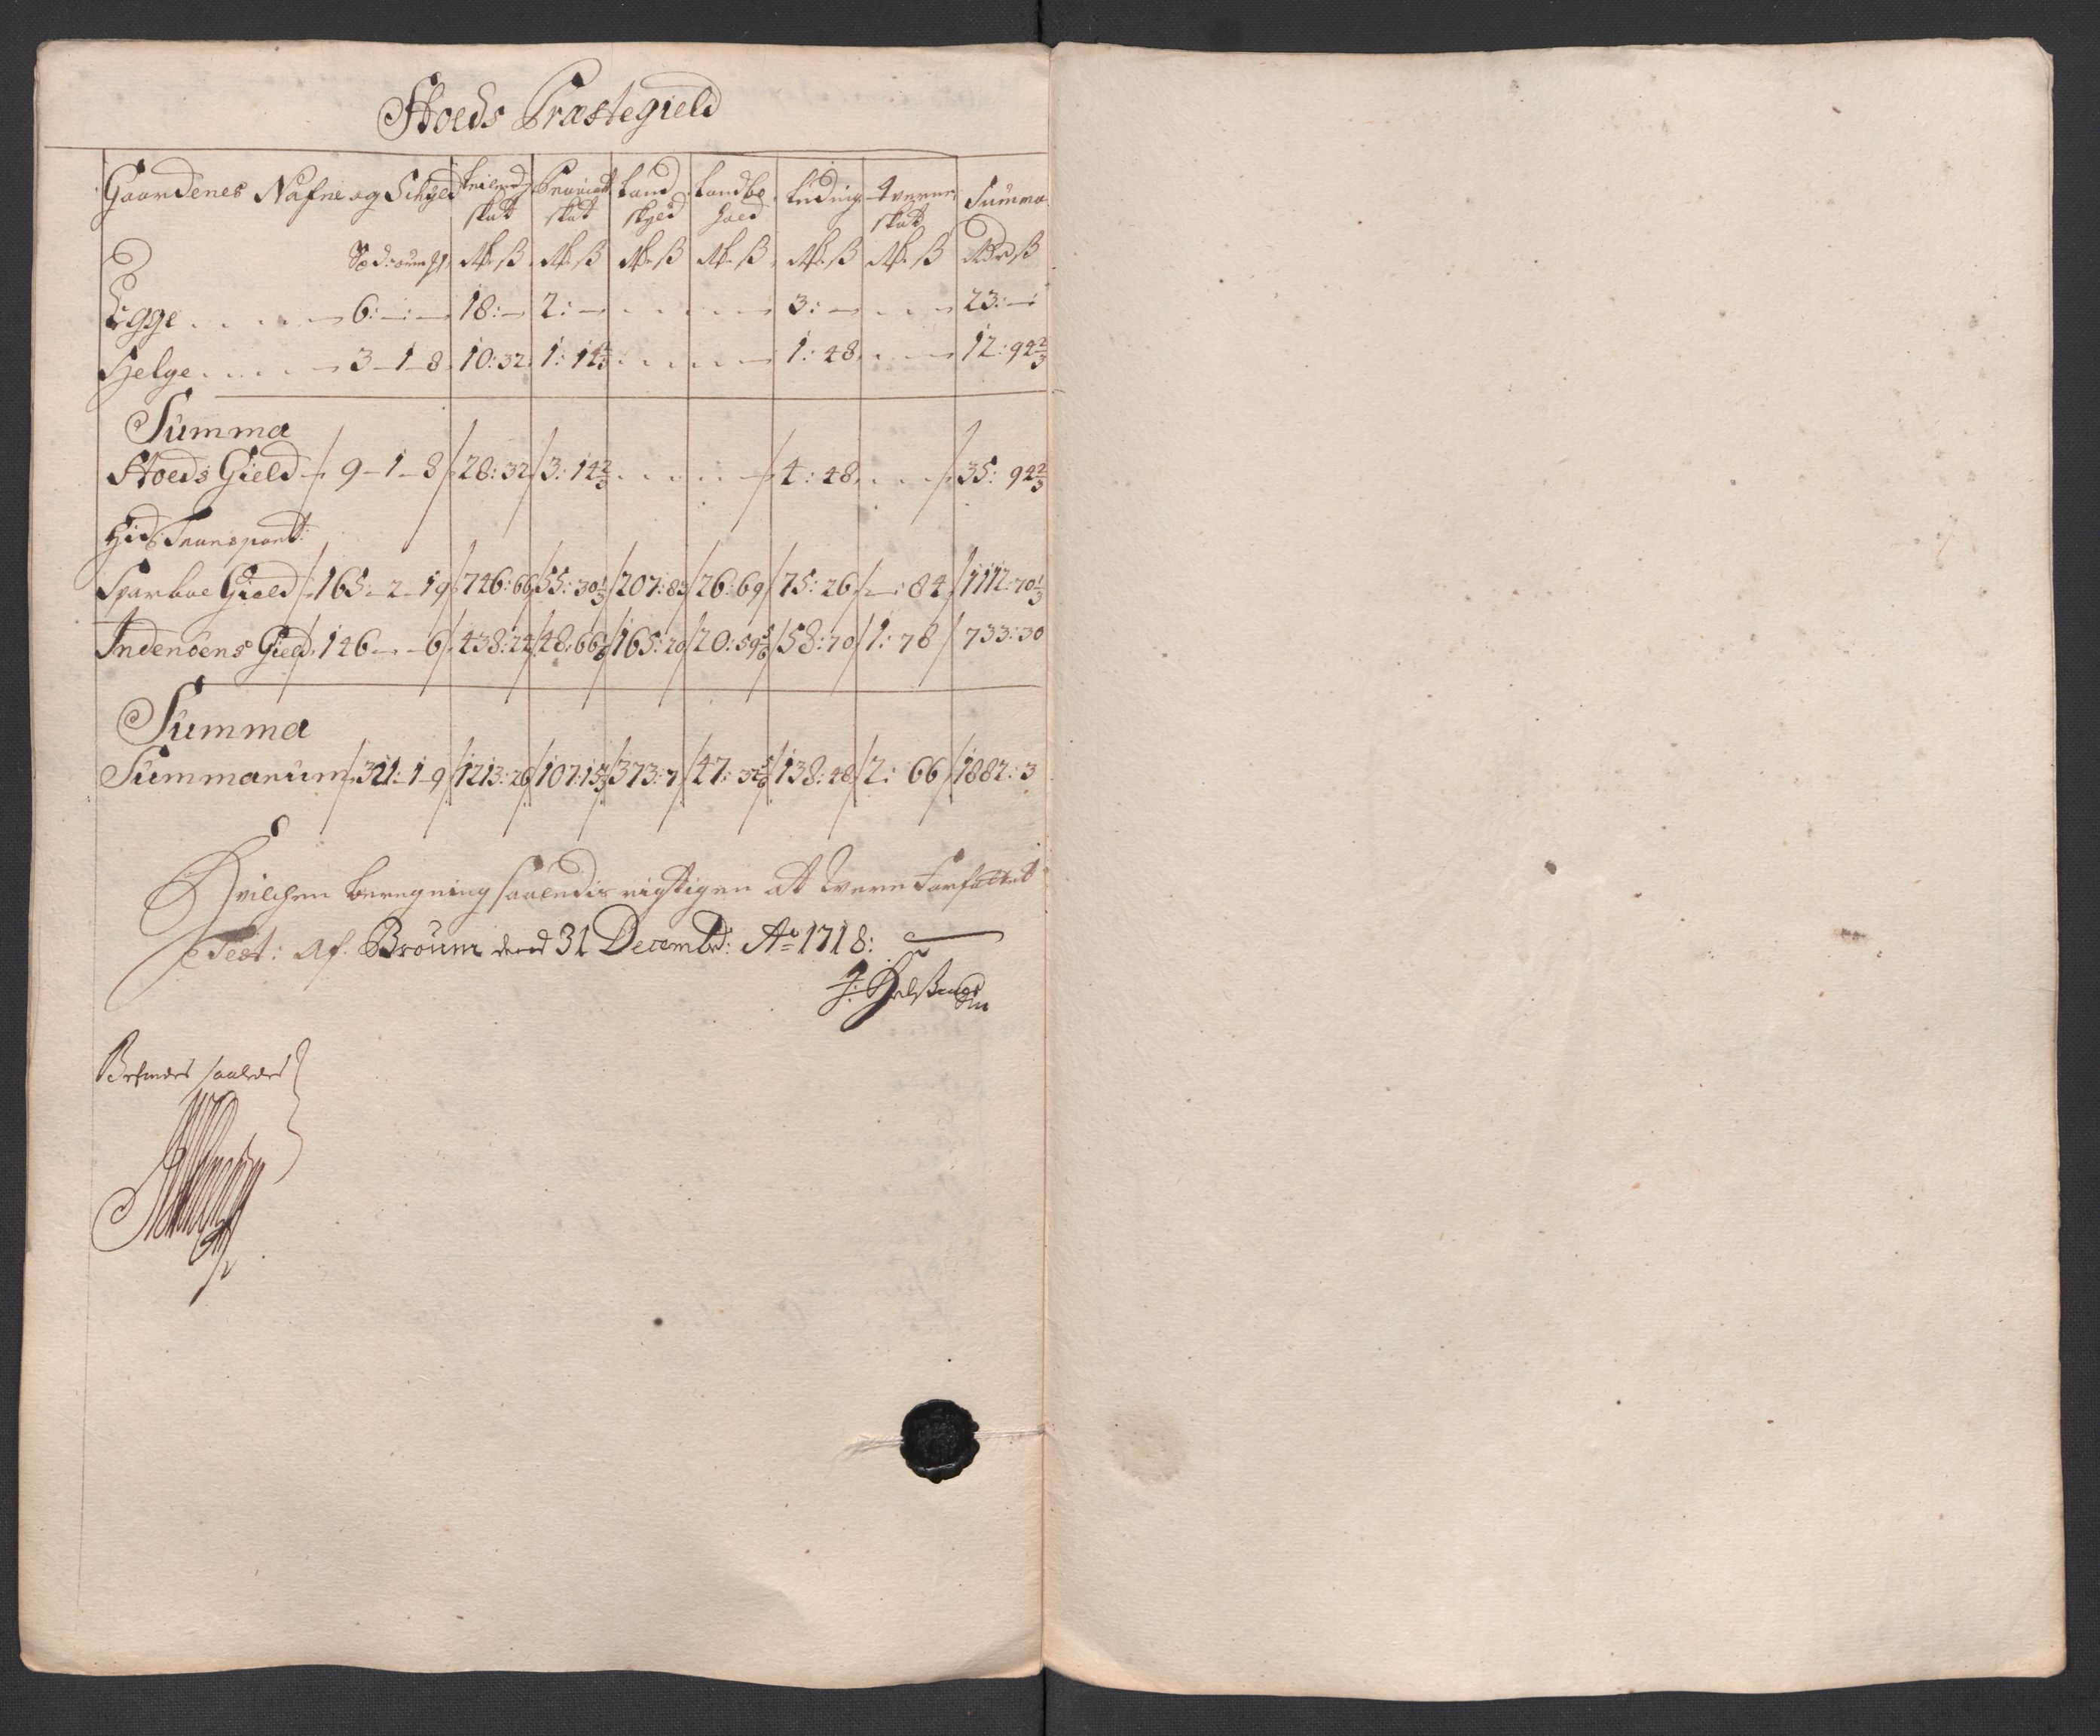 Stoeds Præstegield
Gaardenes Nafne og Schyld Leilends skat Proviant skat Land skyld Landbo hold Leding Qverne skat Summa
Sp d: Øre: ß Rd ß Rd ß Rd ß Rd ß Rd ß Rd ß Rdr ß
Egge . . . . 6: — : — 18: — 2: — . . . . 3: — . . 23: —
Helge . . . . 3 – 1 – 8 10: 32 1: 14 2/3 . . . . 1: 48 . . 12: 94 2/3
Summa
Stoeds Gield 9 – 1 – 8 28: 32 3: 14 2/3 . . . . 4: 48 . . 35: 94 2/3
Hid Transport
Sparboe Gield 165 – 2 – 19 746: 66 55: 30 1/3 207: 83 26: 69 75: 26 — : 84 1112: 70 1/3
Indenøens Gield 146 – – 6 438: 24 48: 66 1/6 165: 20 20: 59 5/6 58: 70 1: 78 733: 30
Summa
Summarum 321: 1 – 9 1213: 26 107: 15 373: 7 47: 32 5/6 138: 48 2: 66 1882: 3
Hvilchen beregning saaledis rigtigen at være Forfattet
Test: Af. Brøum dend 31 Decembr: Ao 1718:
Befindes saaledes